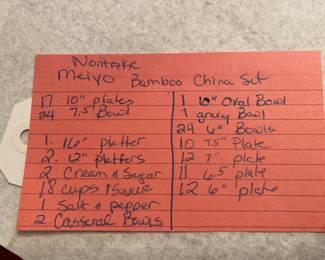 Noritake
Meiyo Bamboo China Set
17 10" plates
24 7.5" Bowl
1. 16" platter
2. 12" platters
2 Cream & Sugar
18 cups & saucer
1 Salt & pepper
2 Casseral Bowls
1 10" Oval Bowl
1 gravy Bowl
24 6" Bowls
10 7.5" Plate
12 7" plate
11 6.5" plate
12 6" plate